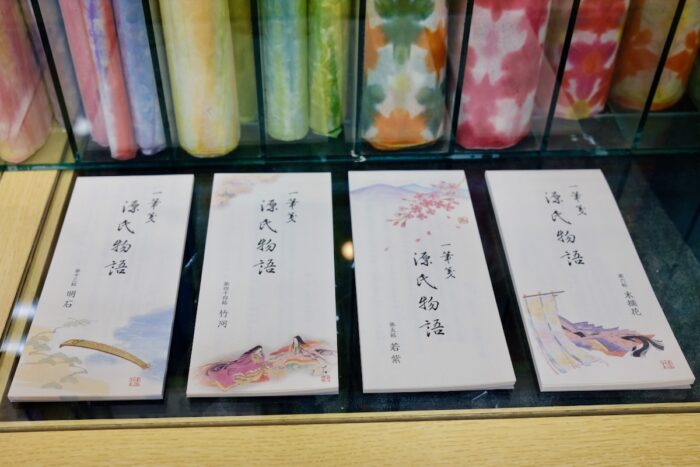 一筆箋
源氏物語
第十三帖 明石
一筆箋
源氏物語
第四十四帖 竹河
一筆箋
源氏物語
第五帖 若紫
一筆箋
源氏物語
第六帖 末摘花